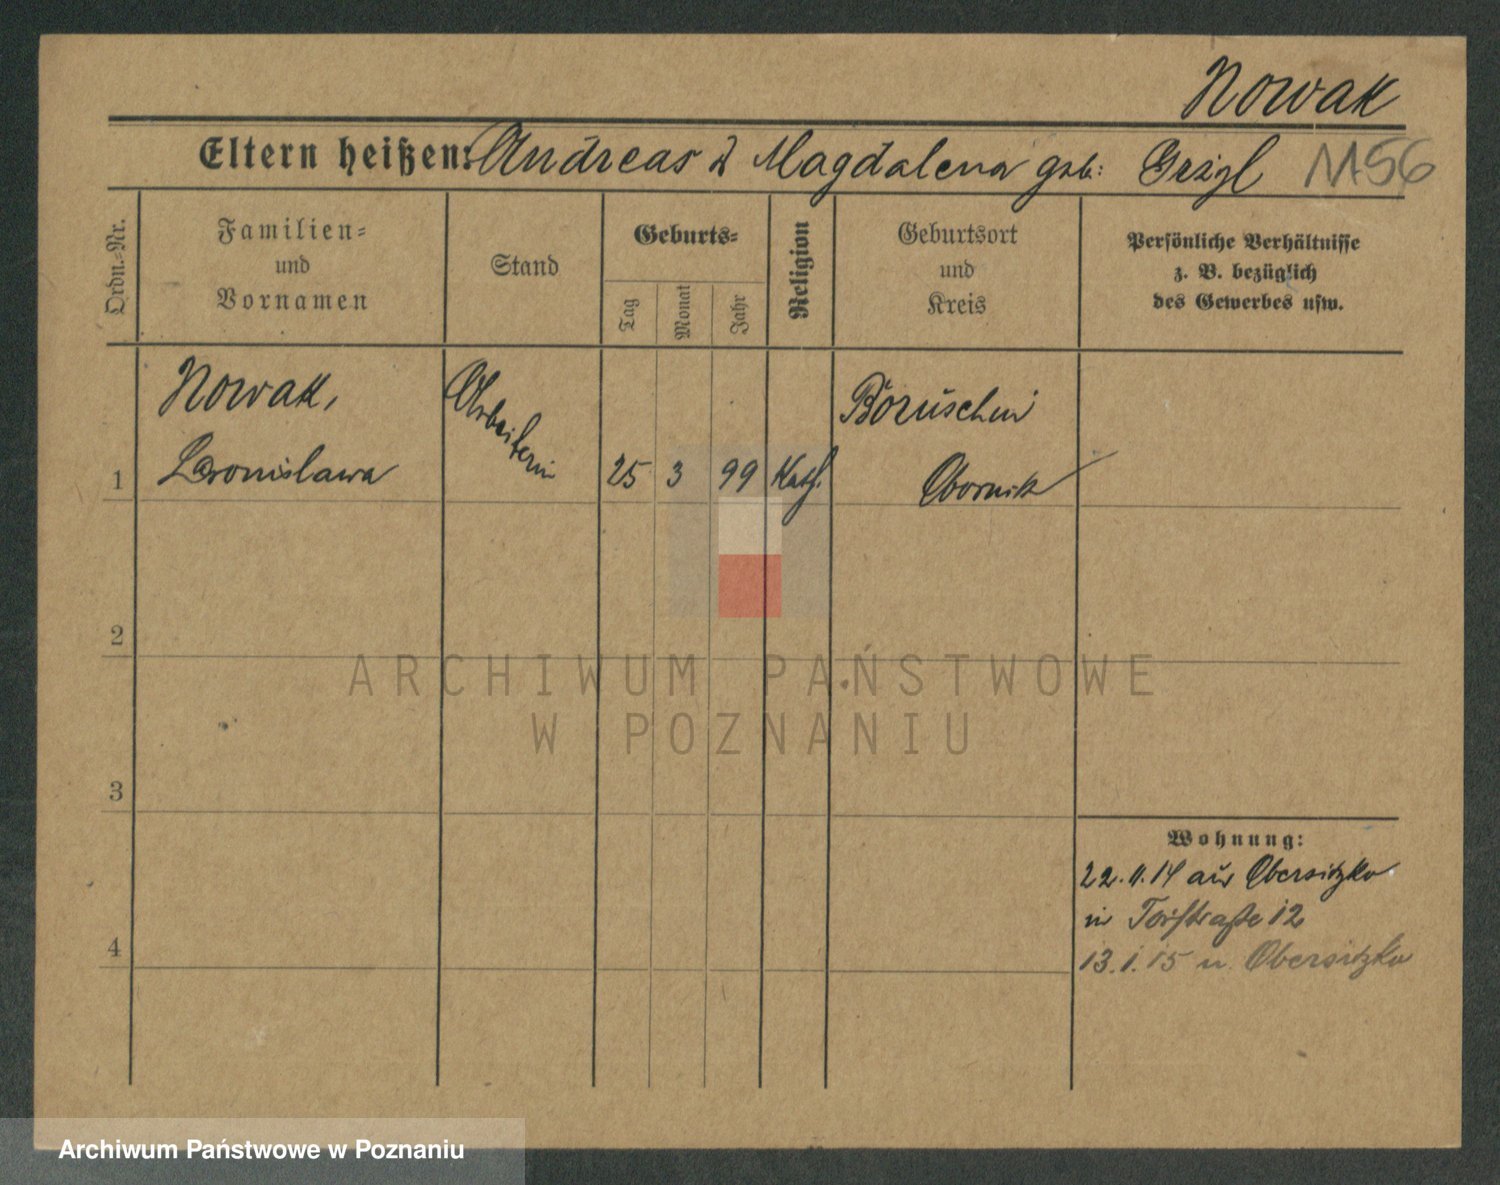 Nowak
Eltern heißen: Andreas u Magdalena geb: Grzyl
Ordn.-Nr.
Familien-
und
Vornamen
Stand
Geburts-
Tag
Monat
Jahr
Religion
Geburtsort
und
Kreis
Persönliche Verhältnisse
z. B. bezüglich
des Gewerbes usw.
1
Nowak,
Leronislawa
Arbeiterin
25 3 99 Kath.
Boruschin
Obornik
2
3
4
Wohnung:
22.11.14 aus Obersitzko
in Torstraße 12
13.1.15 n. Obersitzko
ARCHIWUM PAŃSTWOWE
W POZNANIU
Archiwum Państwowe w Poznaniu